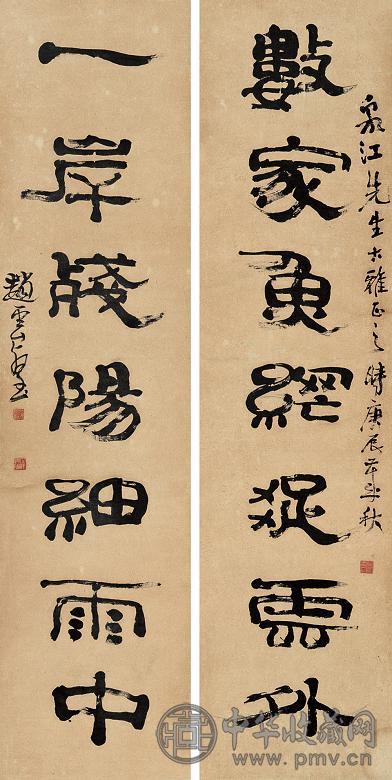 數家魚網疏雲外
江先生大雅正之 時庚辰年秋
一岸殘陽細雨中
趙雲壑書
中华收藏网
www.pmv.cn